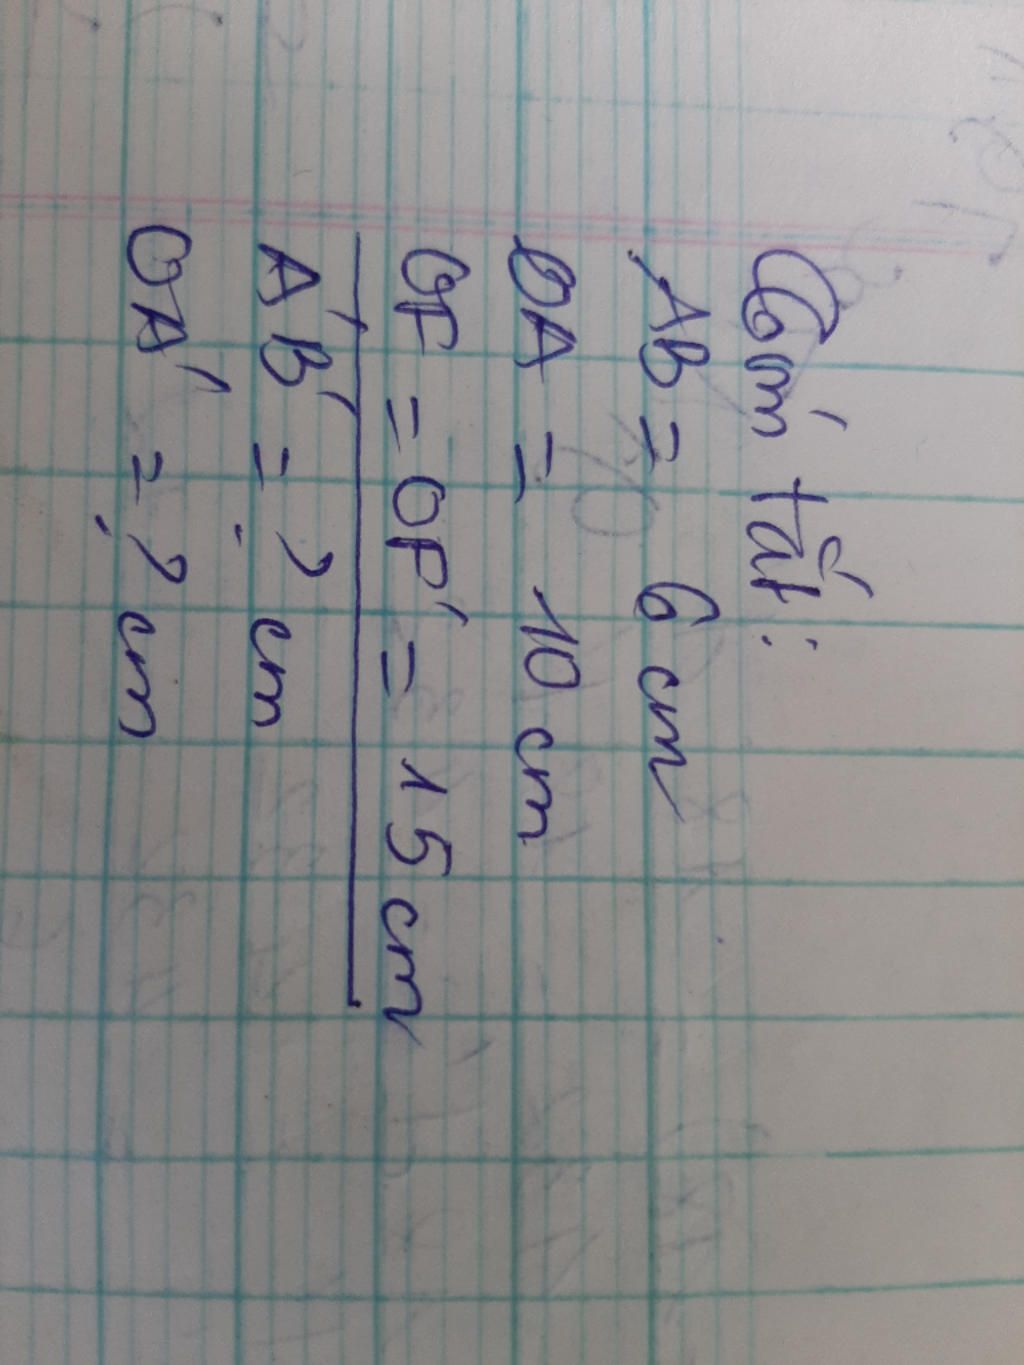 Tóm tắt:
AB = 6 cm
OA = 10 cm
OF = OF' = 15 cm
A'B' = ? cm
OA' = ? cm